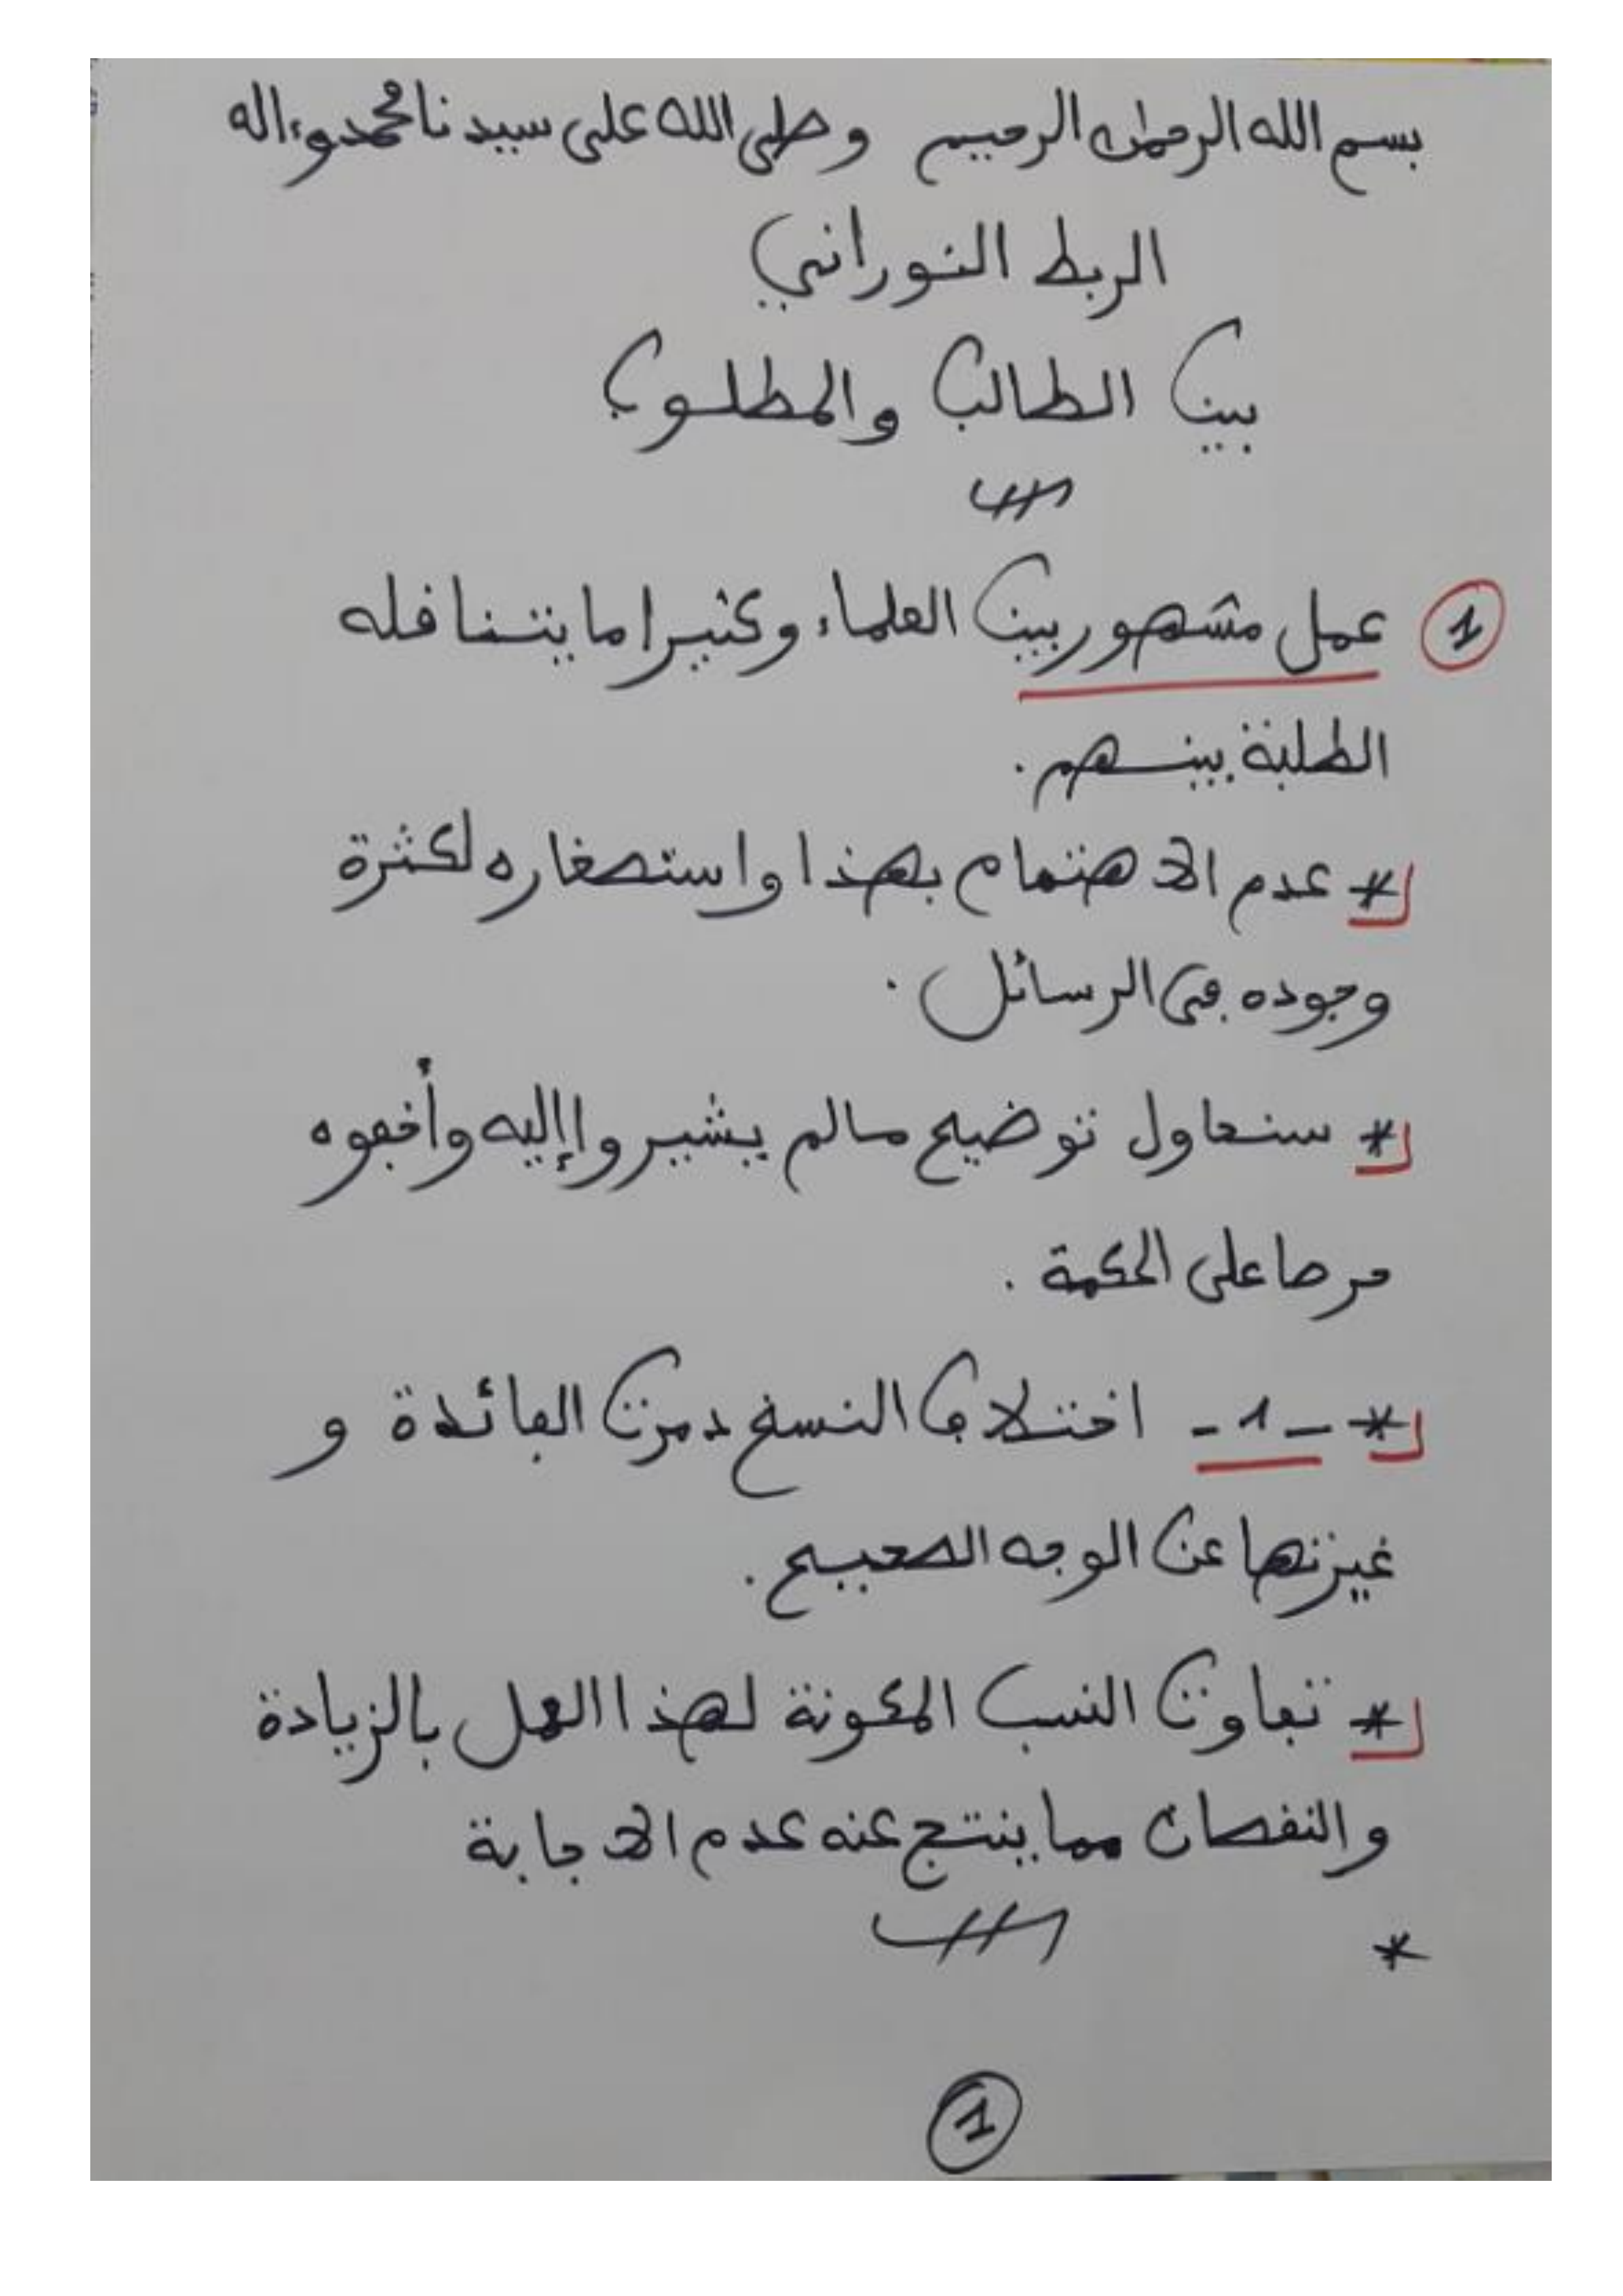 بسم الله الرحمن الرحيم وصلى الله على سيدنا محمد وءاله
الربط النوراني
بين الطالب والمطلوب
1 عمل مشهور بين العلماء وكثيرا ما يتناقله
الطلبة بينهم.
* عدم الاهتمام بهذا واستصغاره لكثرة
وجوده في الرسائل.
* سنحاول توضيح مالم يشيروا إليه وأخفوه
حرصا على الحكمة.
* -1- اختلاف النسخ الفائدة و
غيرتها عن الوجه الصحيح.
* تفاوت النسب المكونة لهذا العمل بالزيادة
والنقصان مما ينتج عنه عدم الاجابة
*
1